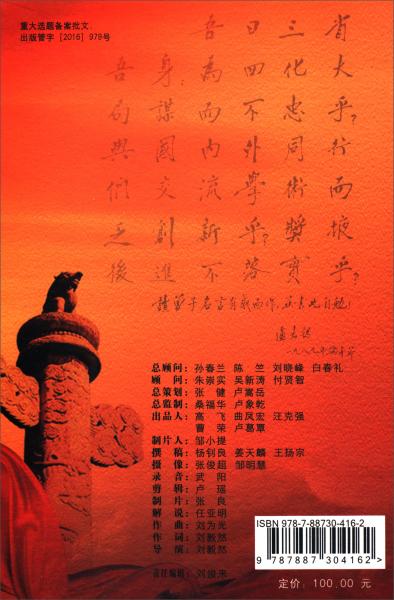 重大选题备案批文:
出版管字 [2016] 979号
省大乎?行而掖乎?
三化忠同術獎賓
日四不外學乎?落
吾為而內流新不
身:謀國交創進
吾局與們乏後
总顾问:孙春兰 陈竺 刘晓峰 白春礼
顾问:朱崇实 吴新涛 付贤智
总策划:张健 卢嵩岳
总监制:桑福华 卢象乾
出品人:高飞 曲凤宏 汪克强
曹荣 卢葛覃
制片人:邹小提
撰稿:杨钊良 姜天麟 王扬宗
摄像:张俊超 邹明慧
录音:武阳
剪辑:卢瑶
制片:张良
解说:任亚明
作曲:刘为光
作词:刘毅然
导演:刘毅然
责任编辑:刘俊来
ISBN 978-7-88730-416-2
9 787887 304162 >
定价:100.00 元